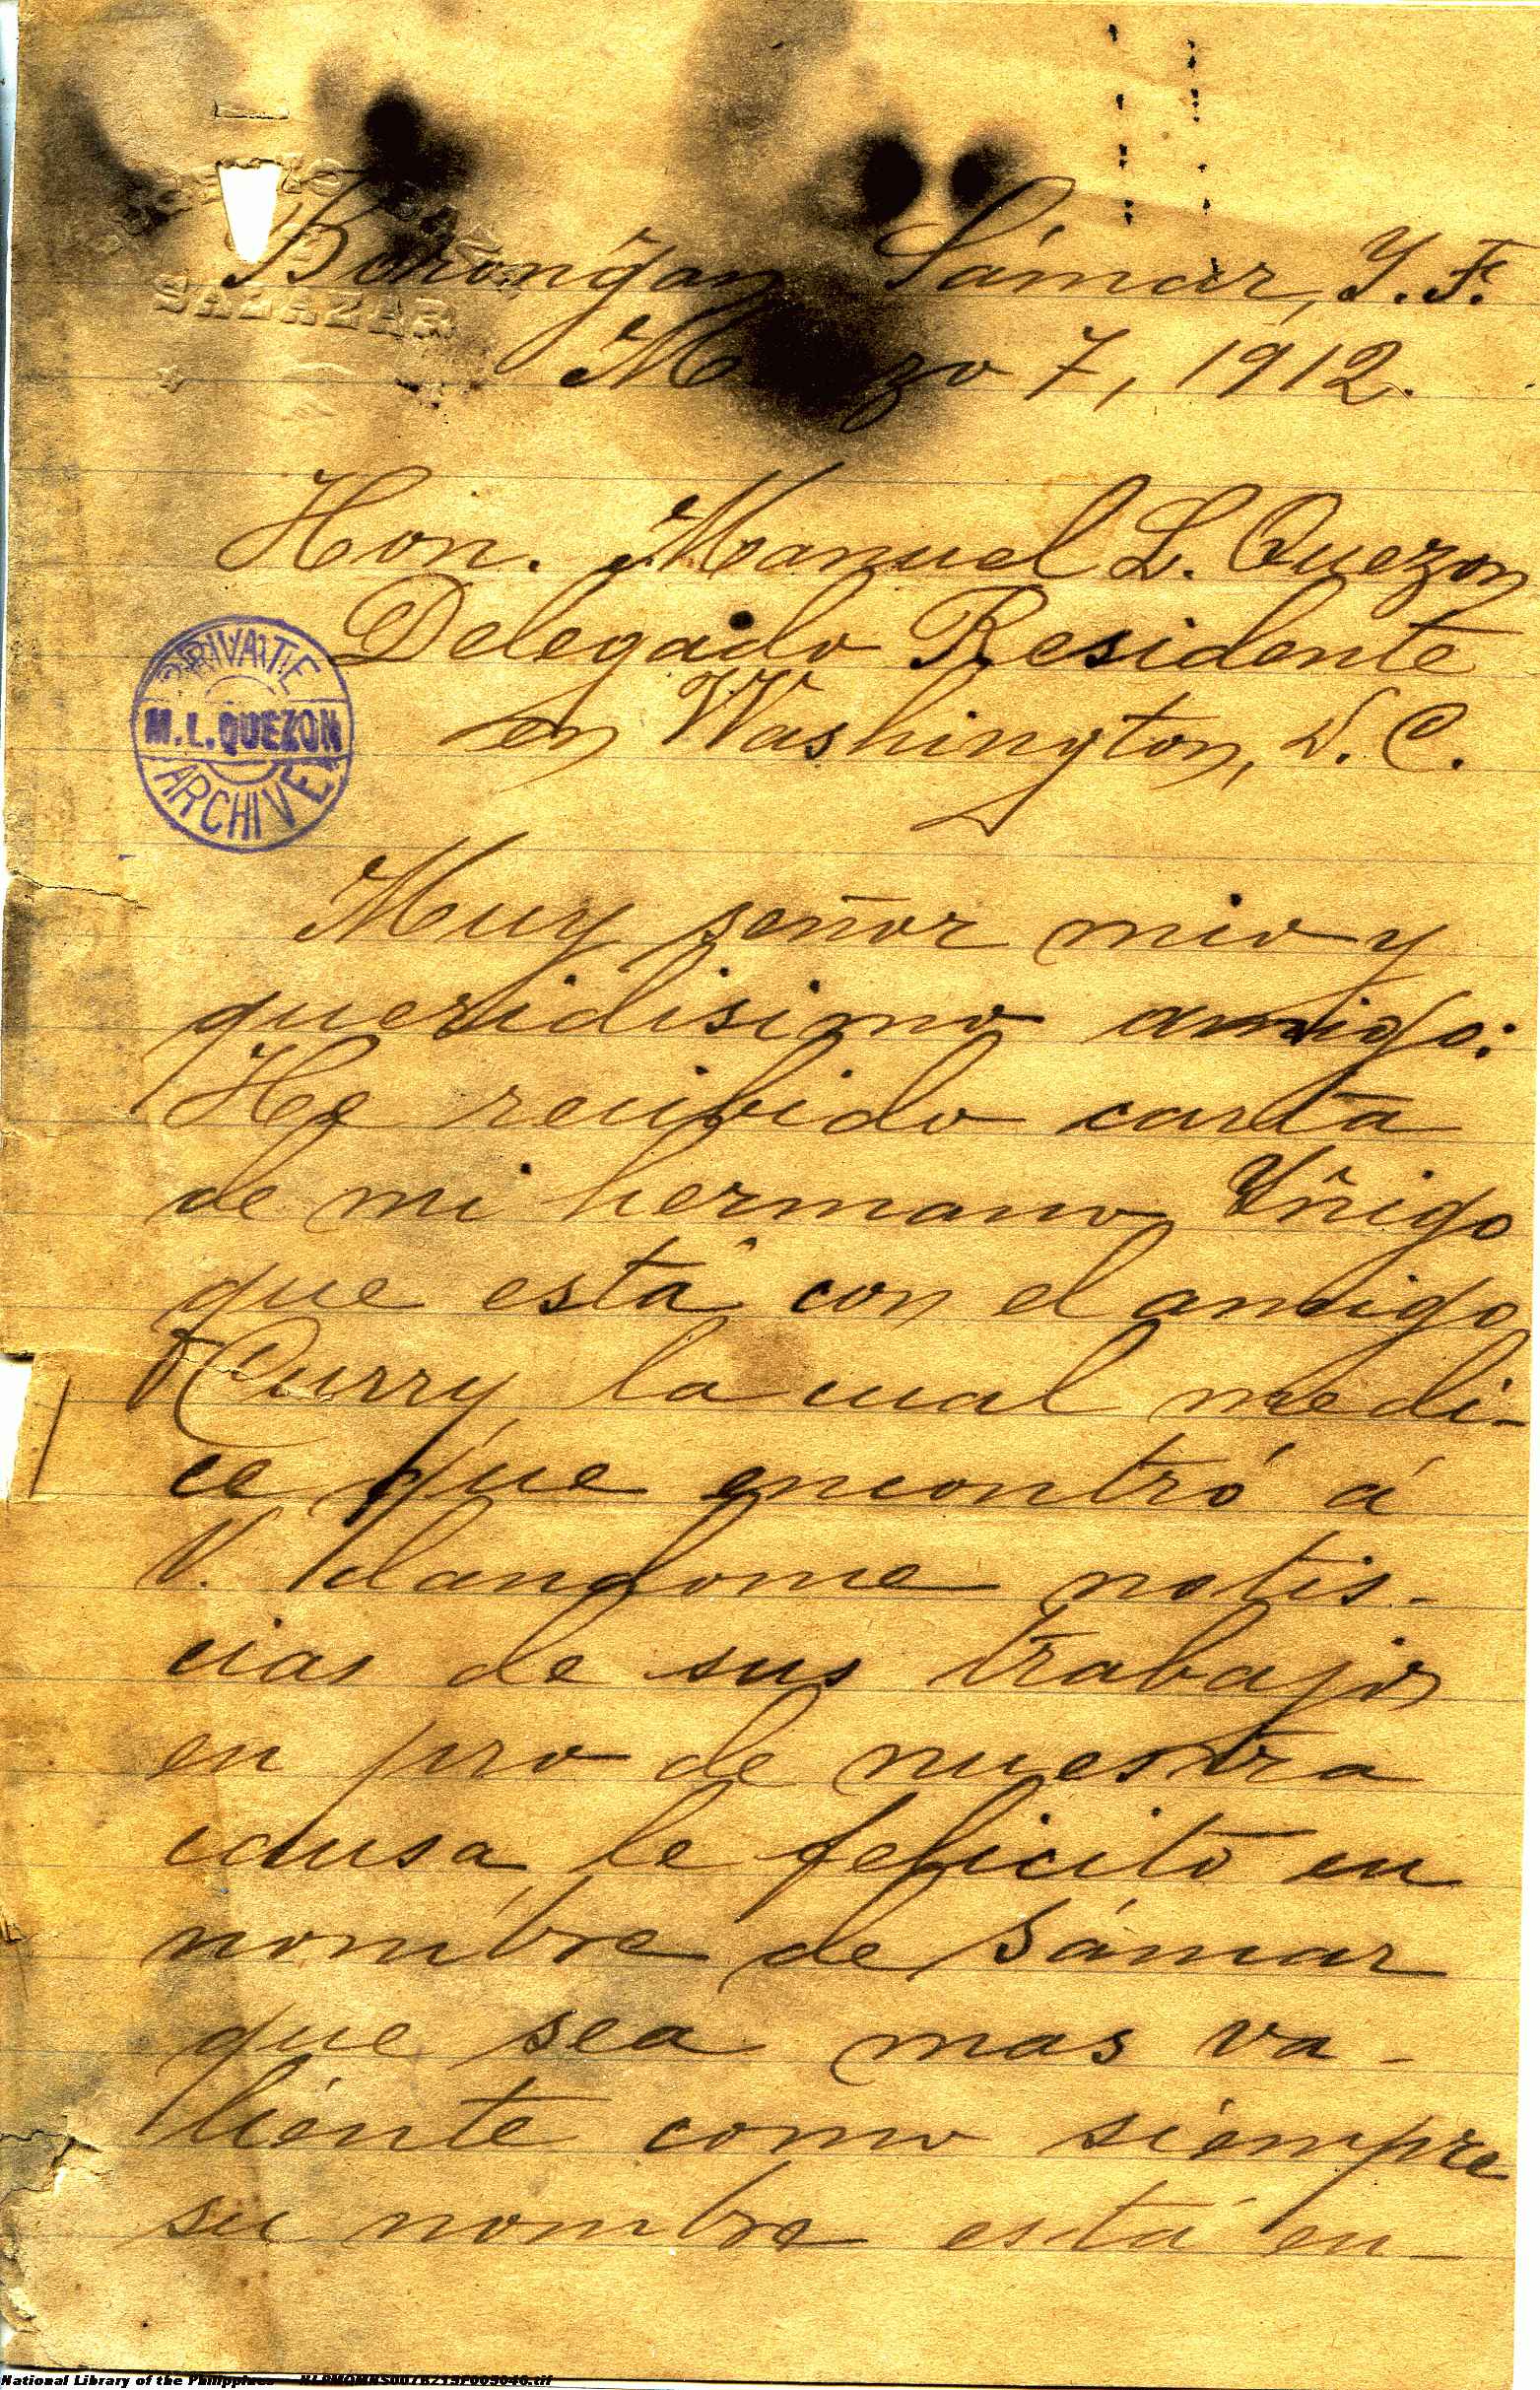 Borongan Sámar, I. F.
Marzo 7, 1912.
Hon. Manuel L. Quezon
Delegado Residente
en Washington, D. C.
PRIVATE
M. L. QUEZON
ARCHIVE
SALAZAR
Muy señor mio y
queridisimo amigo:
He recibido carta
de mi hermano Yñigo
que está con el amigo
Curry, la cual me di-
ce que encontró á
V. dandome notis-
cias de sus trabajos
en pro de nuestra
causa, le felicito en
nombre de Sámar
que sea mas va-
liente como siempre
su nombre está en-
National Library of the Philippines